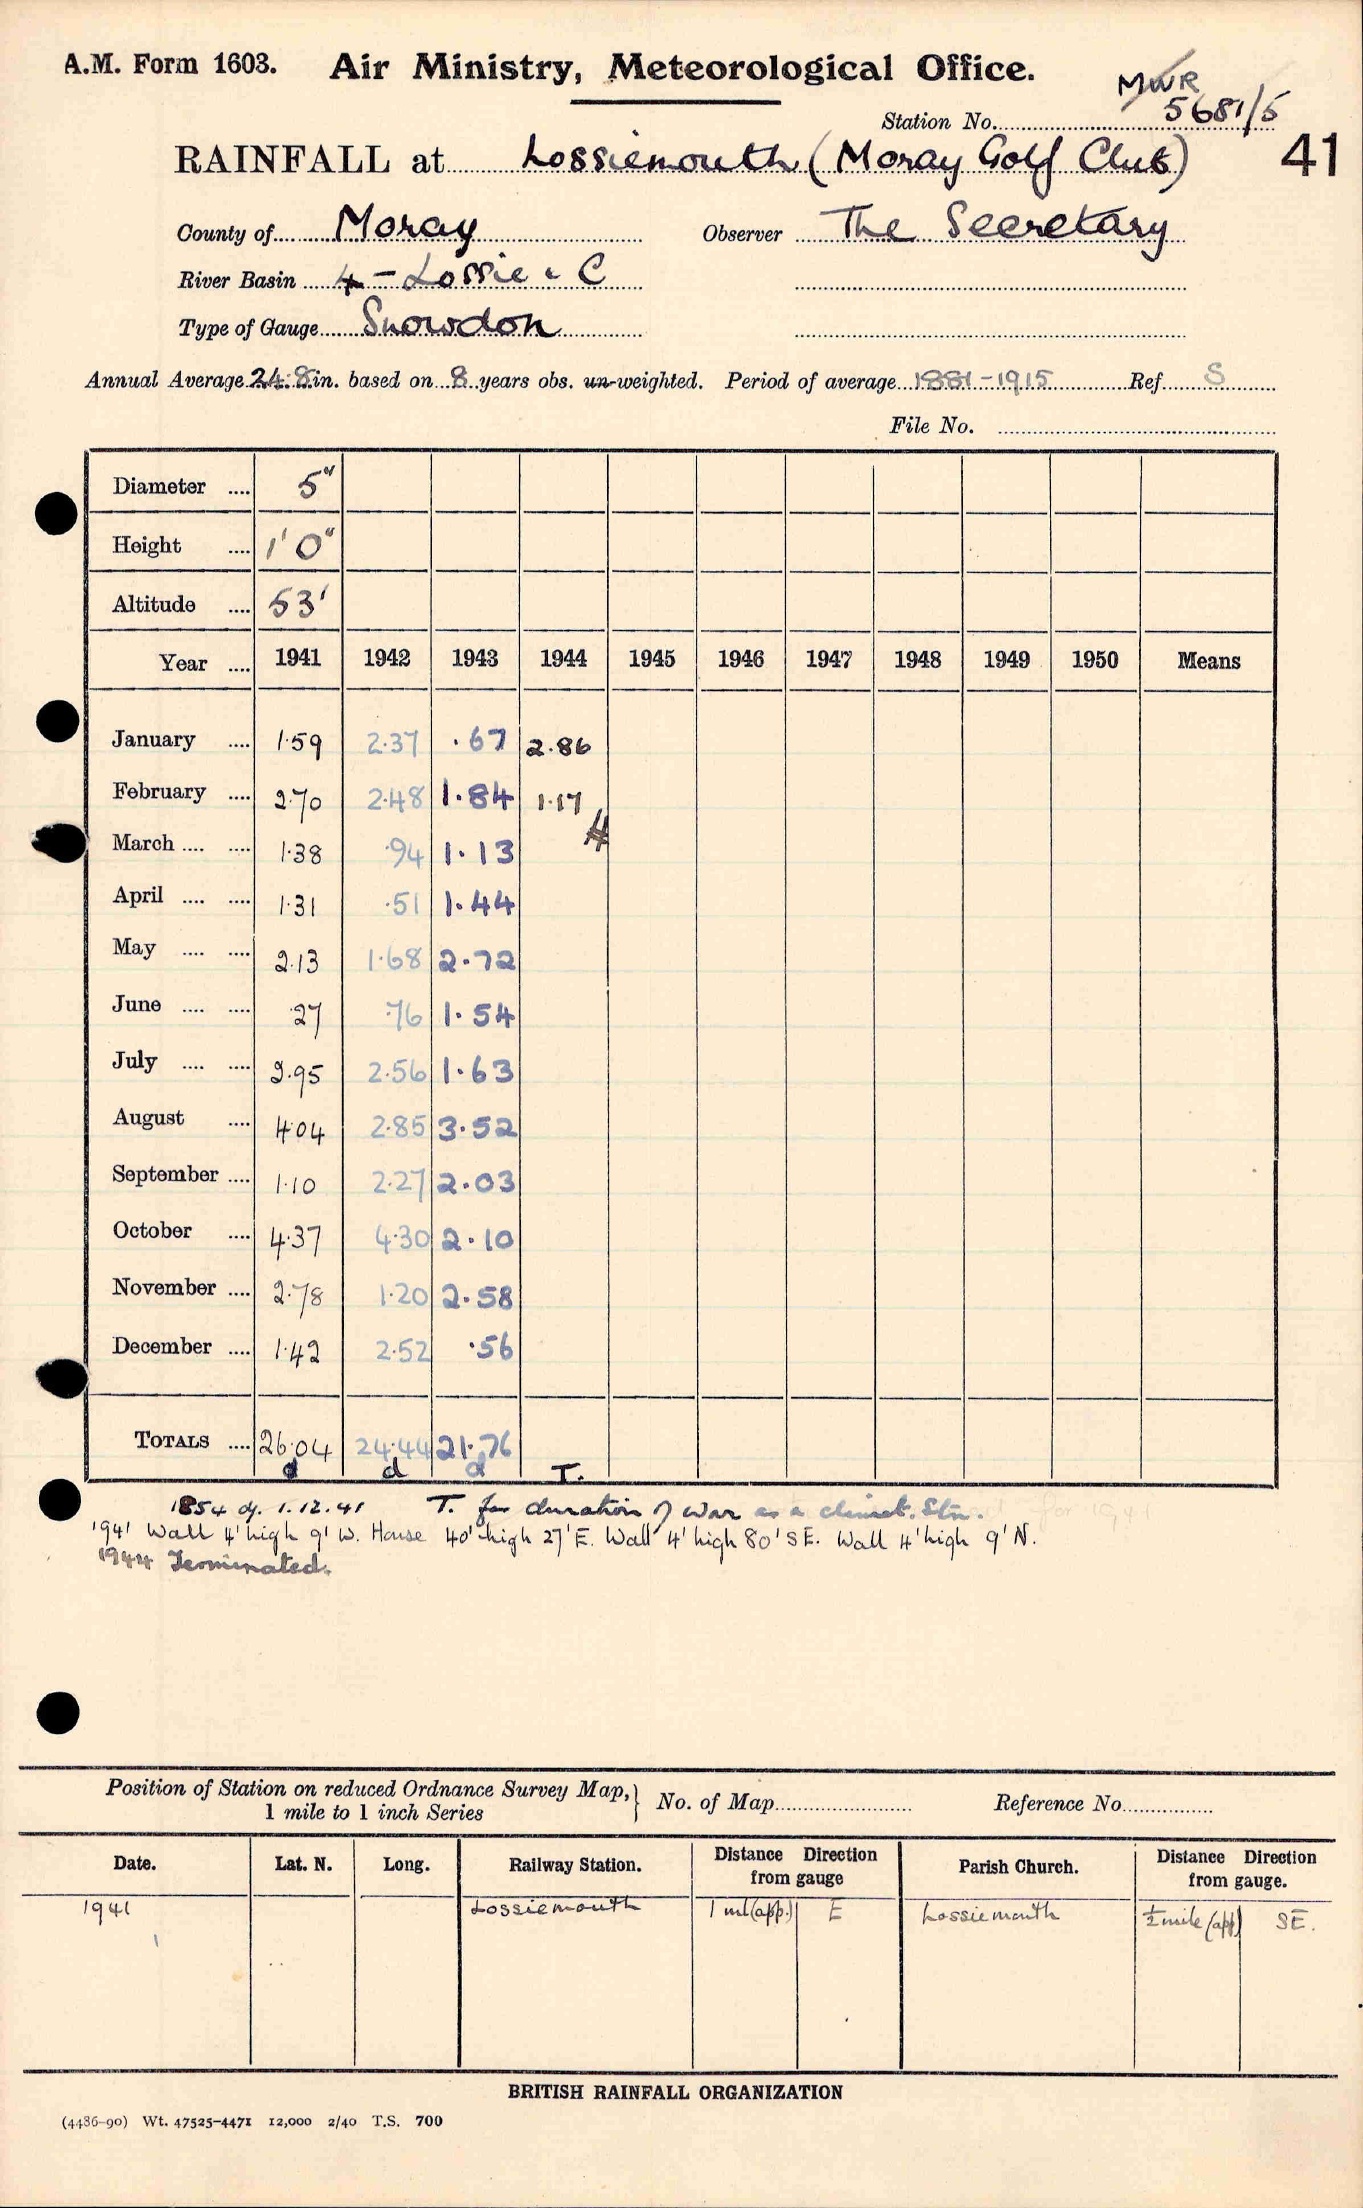 A.M. Form 1603. Air Ministry, Meteorological Office.
MWR
Station No. 5681/5
RAINFALL at Lossiemouth (Moray Golf Club) 41
County of Moray Observer The Secretary
River Basin 4 - Lossie & C
Type of Gauge Snowdon
Annual Average 24.8 in. based on 8 years obs. un-weighted. Period of average 1881-1915 Ref. S
File No.
Diameter .... 5"
Height .... 1' 0"
Altitude .... 53'
Year .... 1941 1942 1943 1944 1945 1946 1947 1948 1949 1950 Means
January .... 1.59 2.37 .67 2.86
February .... 2.70 2.48 1.84 1.17
March .... .... 1.38 .94 1.13
April .... .... 1.31 .51 1.44
May .... .... 2.13 1.68 2.72
June .... .... .27 .76 1.54
July .... .... 2.95 2.56 1.63
August .... 4.04 2.85 3.52
September .... 1.10 2.27 2.03
October .... 4.37 4.30 2.10
November .... 2.78 1.20 2.58
December .... 1.42 2.52 .56
TOTALS .... 26.04 24.44 21.76
d d d T.
1854 dy. 1.12.41 T. for duration of war as a climat. Stn.
1941 Wall 4' high 9' W. House 40' high 27' E. Wall 4' high 80' SE. Wall 4' high 9' N.
1944 Terminated.
Position of Station on reduced Ordnance Survey Map, 1 mile to 1 inch Series } No. of Map Reference No.
Date. Lat. N. Long. Railway Station. Distance Direction from gauge Parish Church. Distance Direction from gauge.
1941 Lossiemouth 1 ml (app.) E Lossiemouth ½ mile (app) SE.
BRITISH RAINFALL ORGANIZATION
(4486-90) Wt. 47525-4471 12,000 2/40 T.S. 700